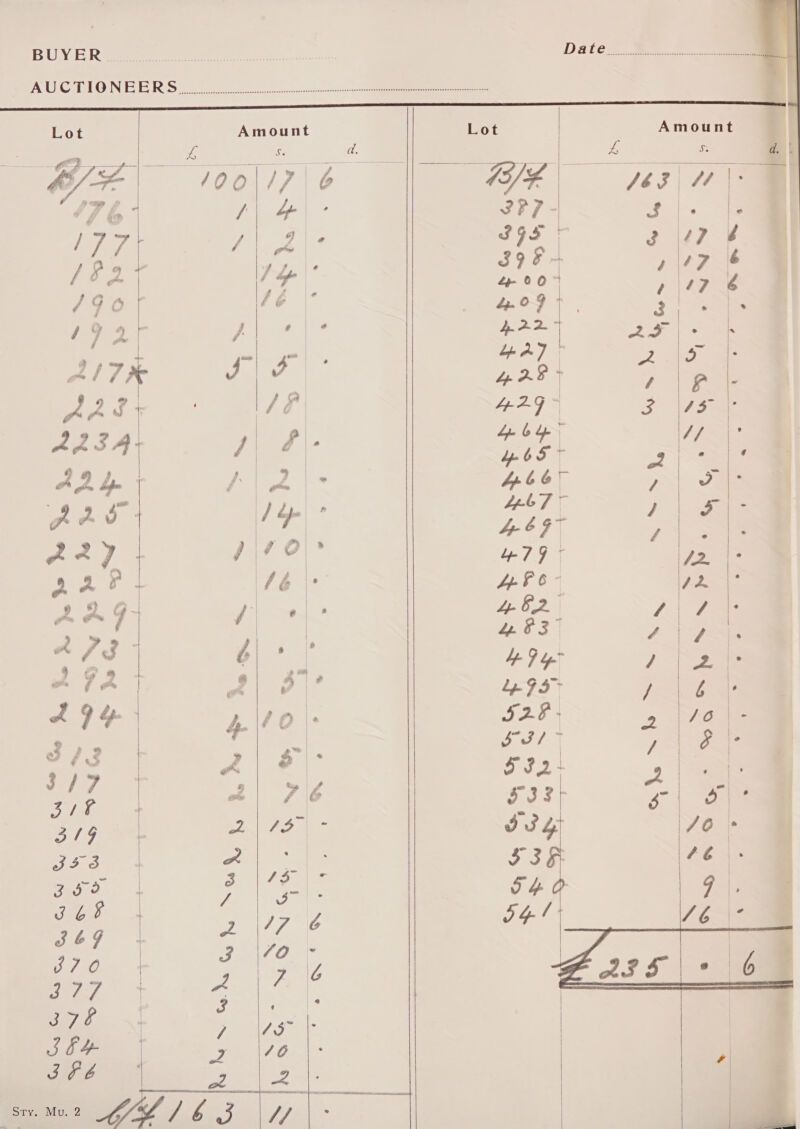 BUYER
Date
AUCTIONEERS
Lot Amount
£ s. d.
B/F 100 17 6
176 1 4 -
177 1 2 -
182 14 -
190 16 -
192 1 - -
217 5 5 -
223 18
223A 1 8 -
224 1 2 -
225 14 -
227 1 10 -
228 16 -
229 1 - -
273 6 - -
292 2 5 -
294 4 10 -
313 2 5 -
317 2 7 6
318
319 2 15 -
353 2 - -
355 3 15 -
368 1 5 -
369 2 17 6
370 3 10 -
377 2 7 6
378 3 - -
384 1 15 -
386 2 10 -
2 2 -
Sty. Mu. 2 C/F 163 11 -
Lot Amount
£ s. d.
B/F 163 11 -
387 3 - -
395 3 17 6
398 1 17 6
400 1 17 6
409 3 - -
422 25 - -
427 2 5 -
428 1 8 -
429 3 15 -
464 11 -
465 2 - -
466 1 5 -
467 1 5 -
469 1 - -
479 12 -
480 12 -
482 1 1 -
483 1 1 -
494 1 2 -
495 1 6 -
528 2 10 -
531 1 8 -
532 2 - -
533 5 5 -
534 10 -
538 16 -
540 9 -
541 16 -
£ 235 - 6